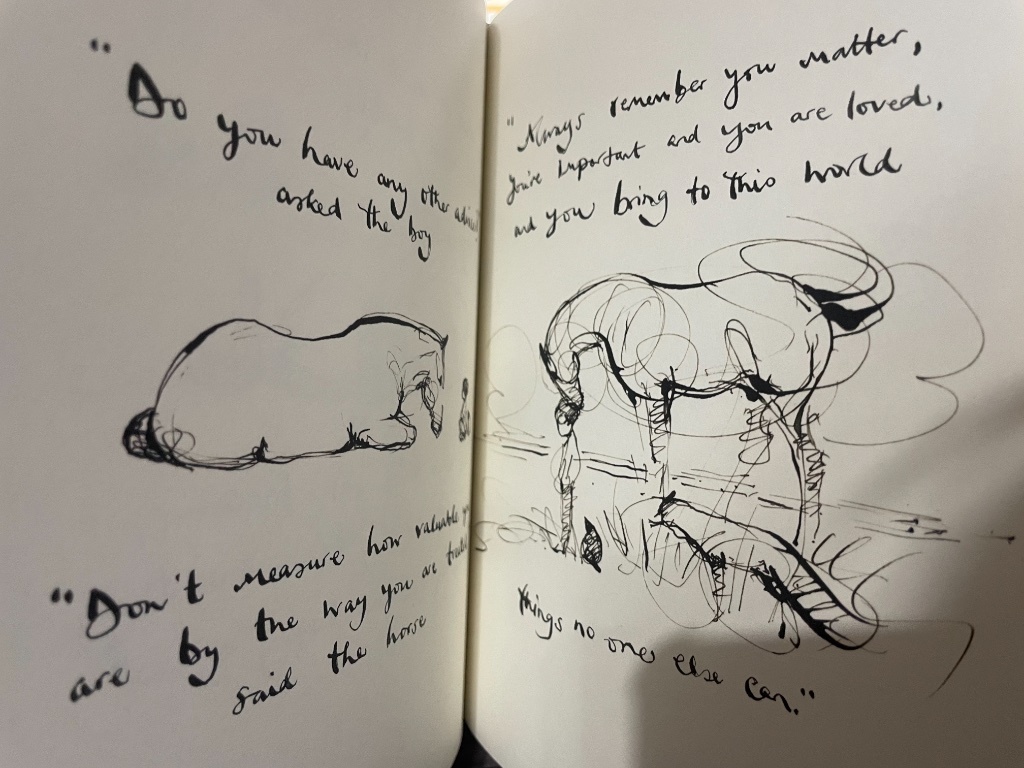 "Do you have any other advice?"
asked the boy
"Don't measure how valuable
are by the way you are
said the horse
"Always remember you matter,
you're important and you are loved,
and you bring to this world
things no one else can."